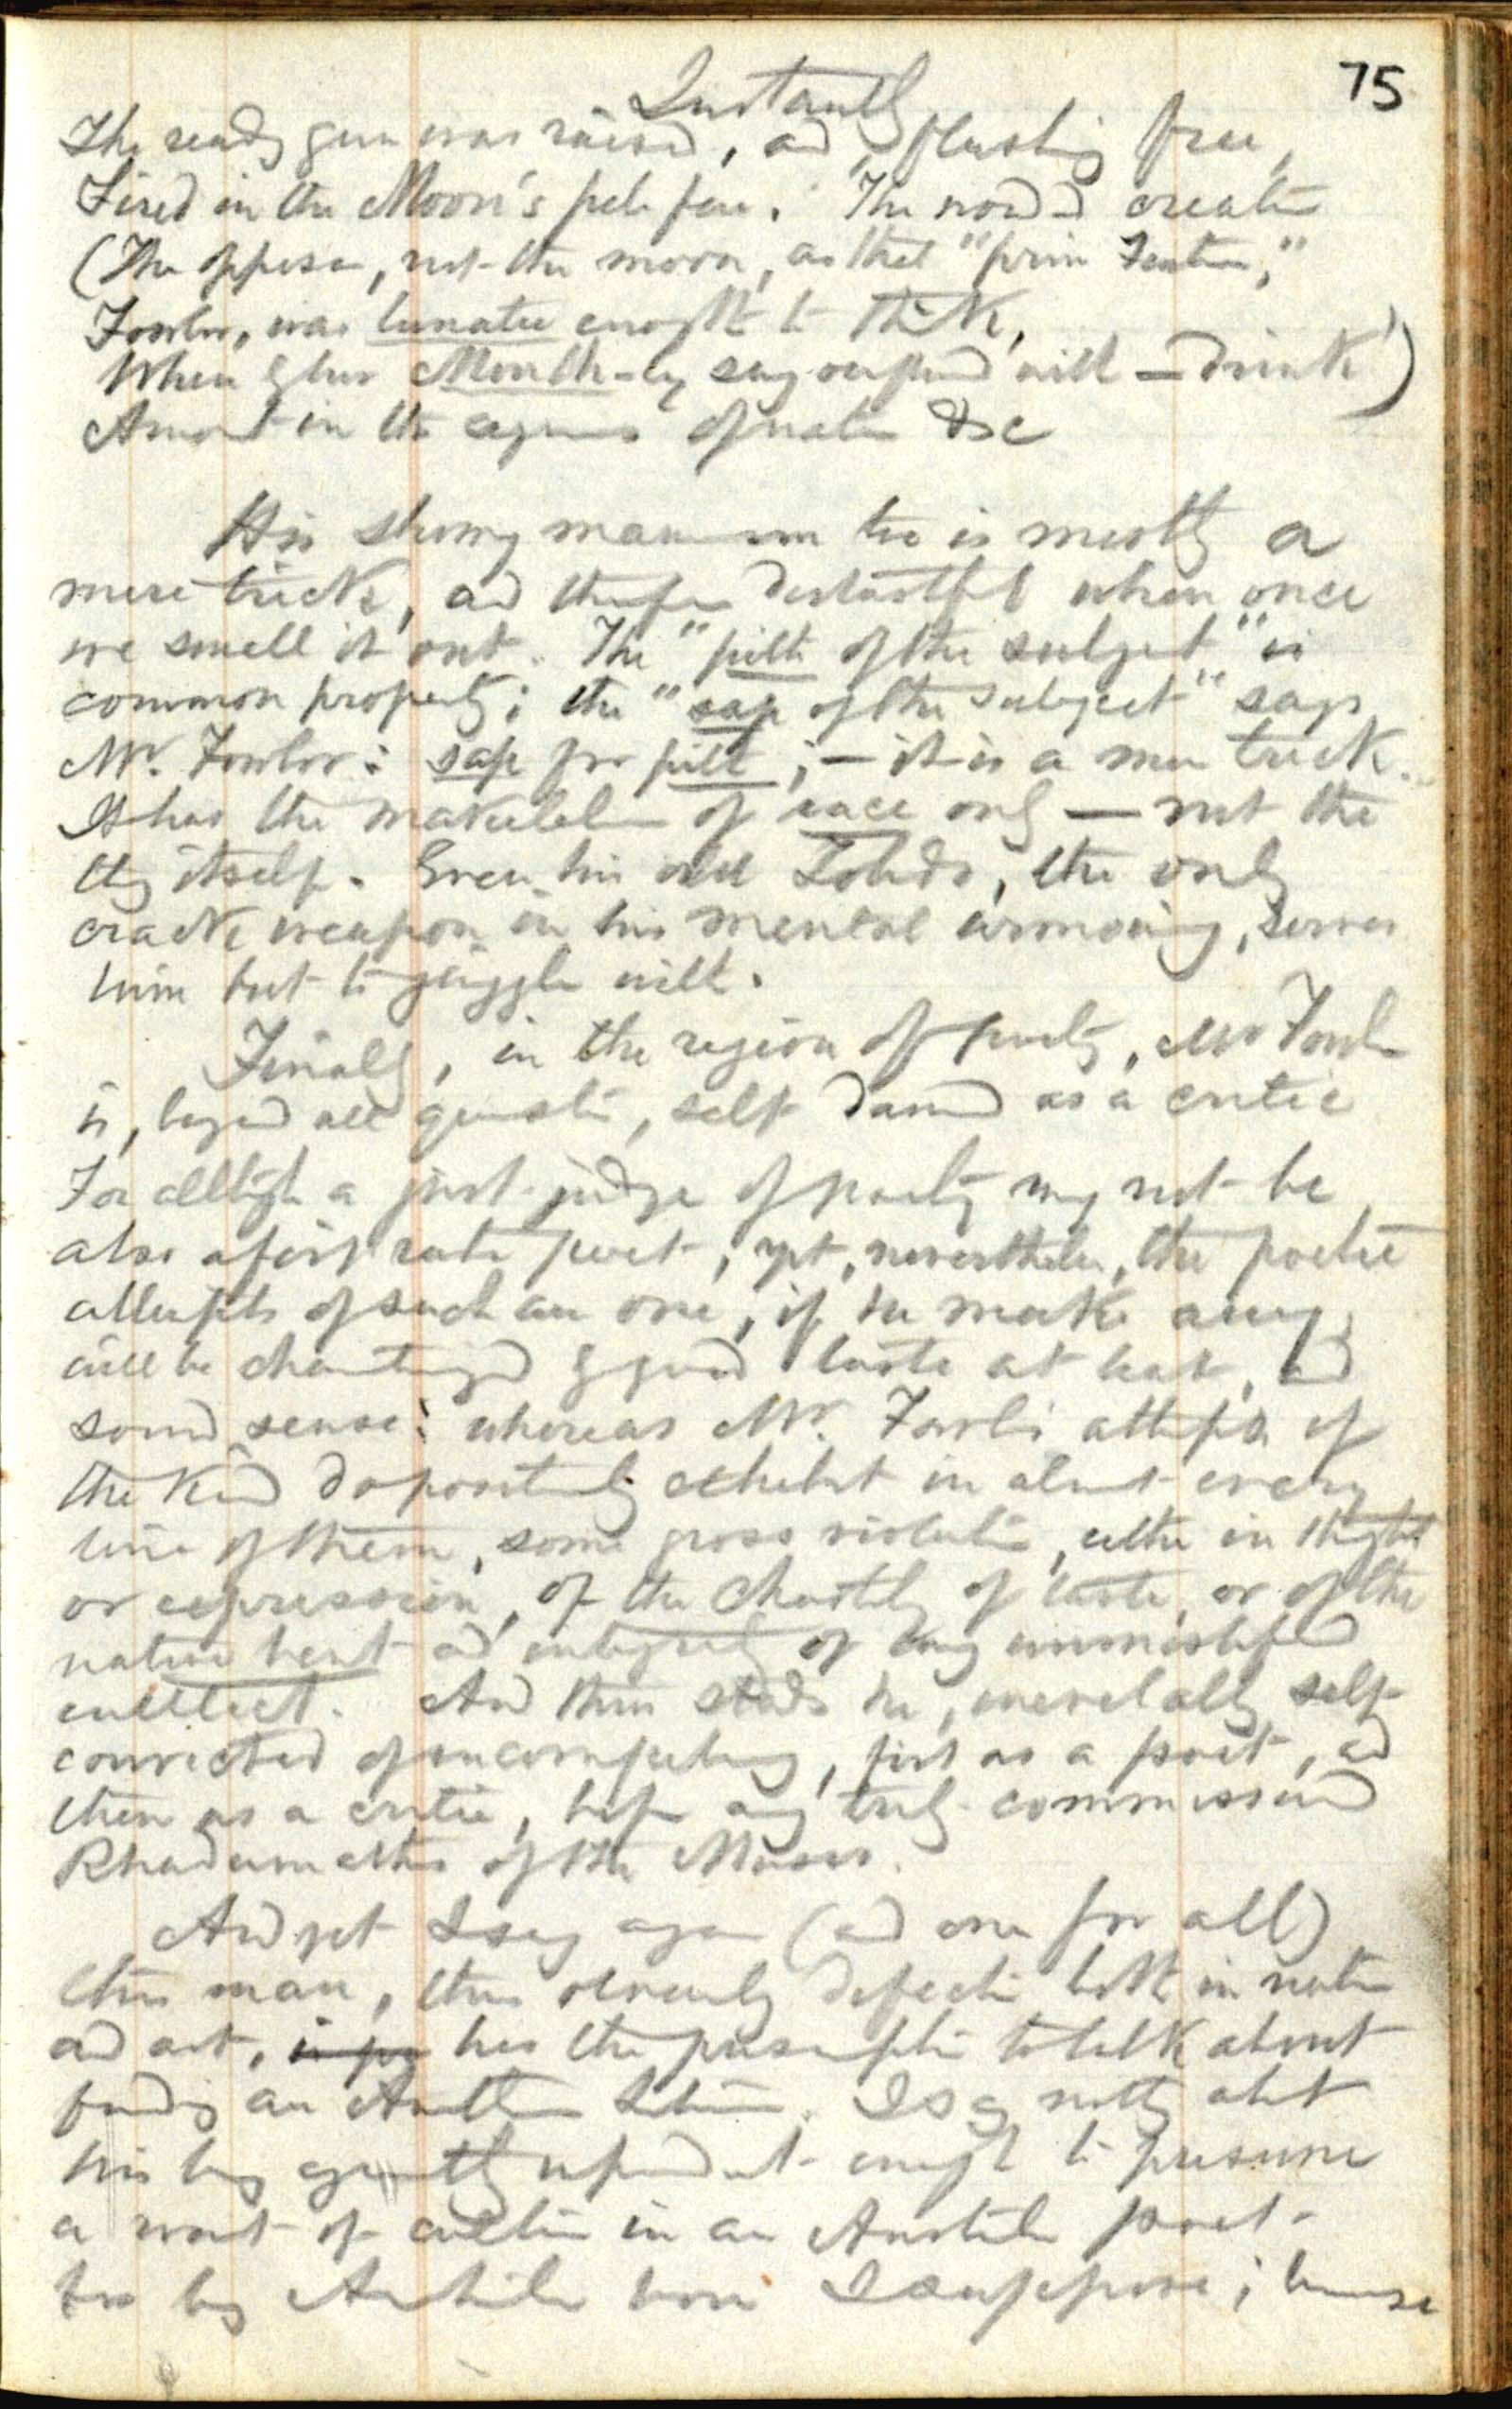 75
Instantly
The ready gun was raised, and, flashing free,
Fired in the Moon's pale face. The creature
(The opossum, not the moon, as that "prim
Fowler, was lunatic enough to think,
When Month-ly say with — drink)
in the of water &c
His showy mannerism too is mostly a
mere trick, and therefore distasteful when once
we smell it out. The "pith of the subject" is
common property; the "sap of the subject" says
Mr. Fowler: sap for pith; — it is a mere trick.
It has the of race only — not the
thing itself. Even his old the only
crack weapon in his mental armoury, serves
him but to giggle with.
Finally, in the region of poetry, Mr Fowler
is, beyond all question, self damned as a critic
For although a just judge of poetry may not be
also a first rate poet, yet, nevertheless, the poetic
attempts of such an one, if he make any,
will be characterized by good taste at least, and
sound sense: whereas Mr. Fowler's attempts of
the kind do positively exhibit in almost every
line of them, some gross violation, either in thought
or expression, of the chastity of taste, or of the
native bent and integrity of any
intellect. And thus stands he, self
convicted of incompetency, first as a poet, and
then as a critic, before any truly commissioned
Rhadamanthus of the Muses.
And yet I say again (and once for all)
this man, thus obviously defective both in nature
and art, has the presumption to talk about
finding an I say nothing about
his being enough to presume
a want of culture in an Australian poet
his being Australian born I suppose; because